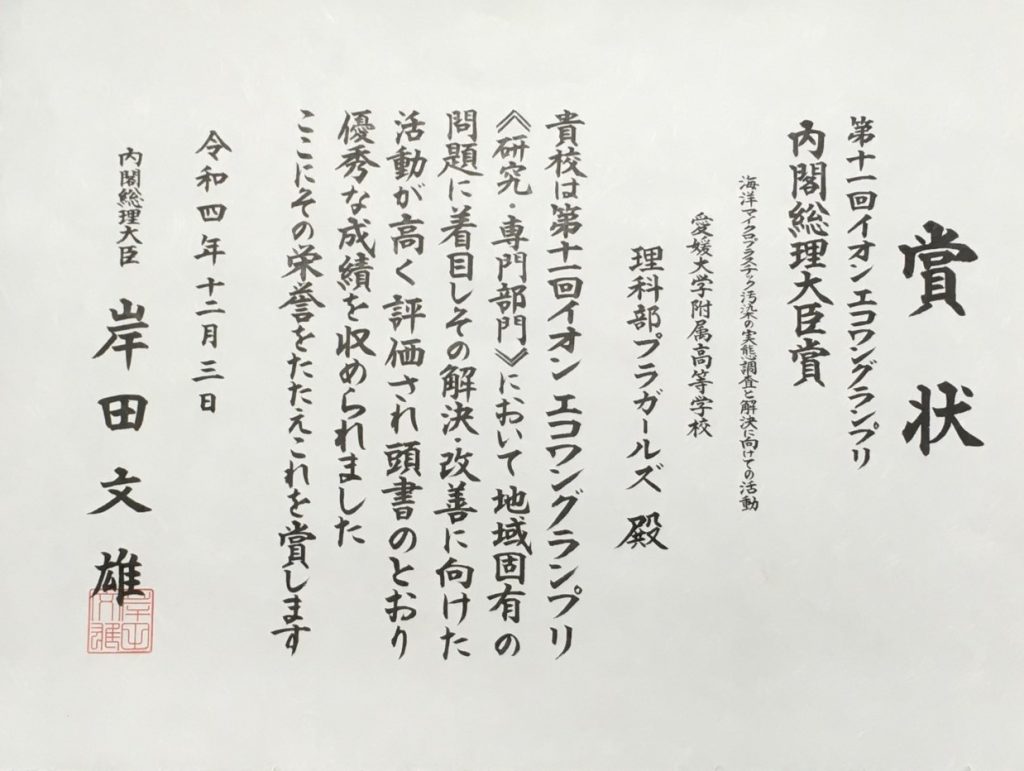 賞状
第十一回イオンエコワングランプリ
内閣総理大臣賞
海洋マイクロプラスチック汚染の実態調査と解決に向けての活動
愛媛大学附属高等学校
理科部プラガールズ 殿
貴校は第十一回イオンエコワングランプリ
《研究・専門部門》において地域固有の
問題に着目しその解決・改善に向けた
活動が高く評価され頭書のとおり
優秀な成績を収められました
ここにその栄誉をたたえこれを賞します
令和四年十二月三日
内閣総理大臣 岸田文雄
岸田文雄